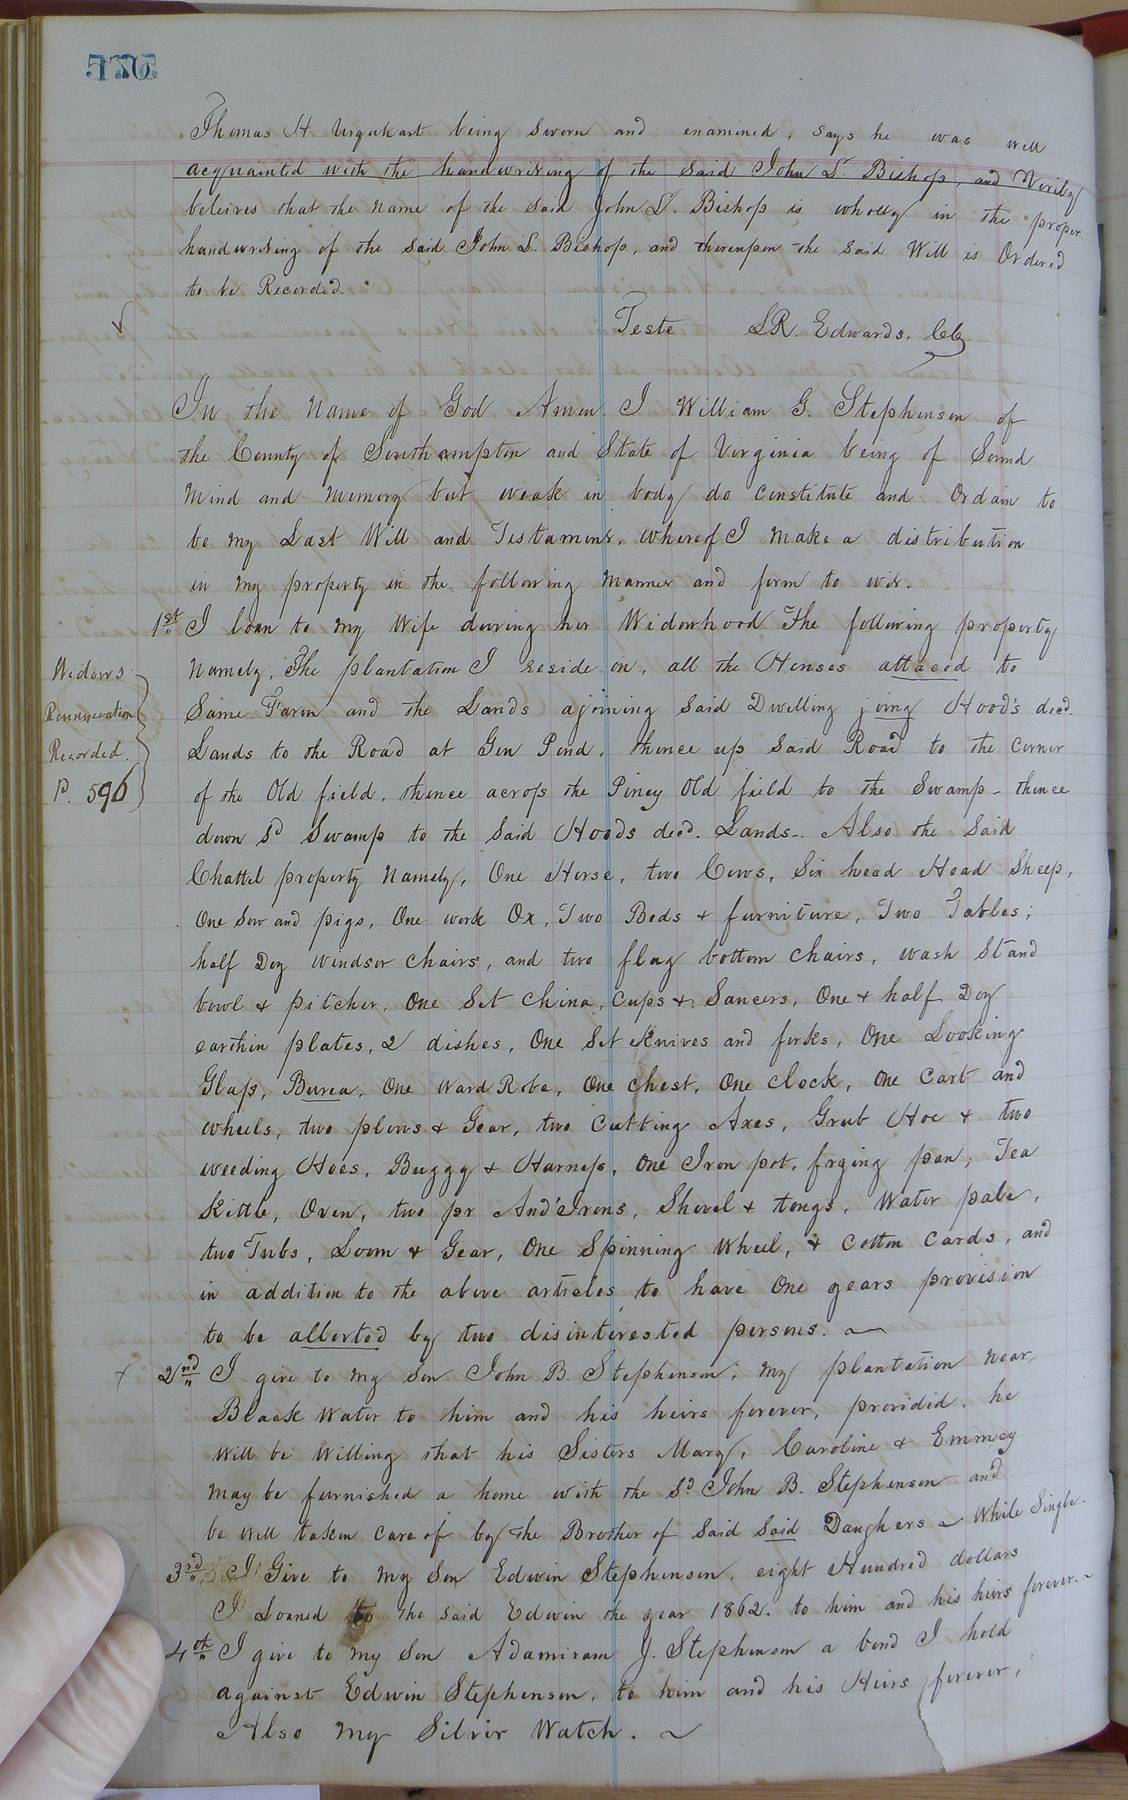 Thomas H. Urquhart being sworn and examined, says he was well
acquainted with the handwriting of the said John L. Bishop, and Verily
beleives that the name of the said John L. Bishop is wholly in the proper
handwriting of the said John L. Bishop, and thereupon the said Will is Ordered
to be Recorded.
Teste L R. Edwards. Clk
In the Name of God Amen. I William G. Stephenson of
the County of Southampton and State of Virginia being of Sound
Mind and Memory but weak in body do constitute and Ordain to
be my Last Will and Testament, whereof I make a distribution
in my property in the following manner and form to wit.
1st I loan to my Wife during her Widowhood The following property
Widows
Namely, The plantation I reside on, all the Houses attaced to
Renunciation
Same Farm and the Lands ajoining said Dwelling joing Hood's decd.
Recorded.
Lands to the Road at Gin Pond, thence up said Road to the corner
P. 596
of the Old field, thence across the Piney Old field to the Swamp - thence
down sd Swamp to the said Hoods decd. Lands-. Also the said
Chattel property Namely, One Horse, two Cows, Six head Head Sheep,
One Sow and pigs, One work Ox, Two Beds & furniture, Two Tables;
half Doz Windsor chairs, and two flag bottom chairs, wash stand
bowl & pitcher, One Set China, Cups & Saucers, One & half Doz
earthin plates, 2 dishes, One Set Knives and forks, One Looking
Glass, Burea, One Ward Robe, One chest, One clock, One cart and
wheels, two plows & Gear, two Cutting Axes, Grub Hoe & two
weeding Hoes, Buggy & Harness, One Iron pot, frying pan, Tea
Kittle, Oven, two pr And'Irons, Shovel & tongs, Water pale,
two Tubs, Loom & Gear, One Spinning Wheel, & Cotton Cards, and
in addition to the above articles, to have One years provision
to be allerted by two disinterested persons.
2nd I give to my Son John B. Stephenson, my plantation near
Black Water to him and his heirs forever, provided, he
will be willing that his Sisters Mary, Caroline & Emmey
may be furnished a home with the sd John B. Stephenson and
be well taken care of by the Brother of said said Daughers - While Single.
3rd I Give to my Son Edwin Stephenson, eight Hundred dollars
I Loaned to the said Edwin the year 1862. to him and his heirs forever.
4th I give to my Son Adamiram J. Stephenson a bond I hold
against Edwin Stephenson, to him and his Heirs forever,
Also my Silvir Watch.